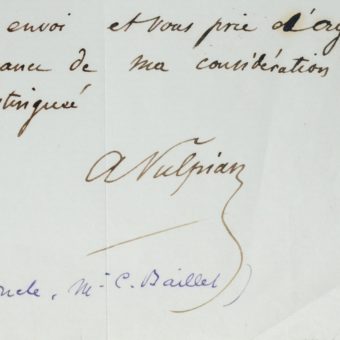 envoi et vous prie d'ag
ance de ma considération
tinguée
A Vulpian
oncle, Mr C. Baillet)